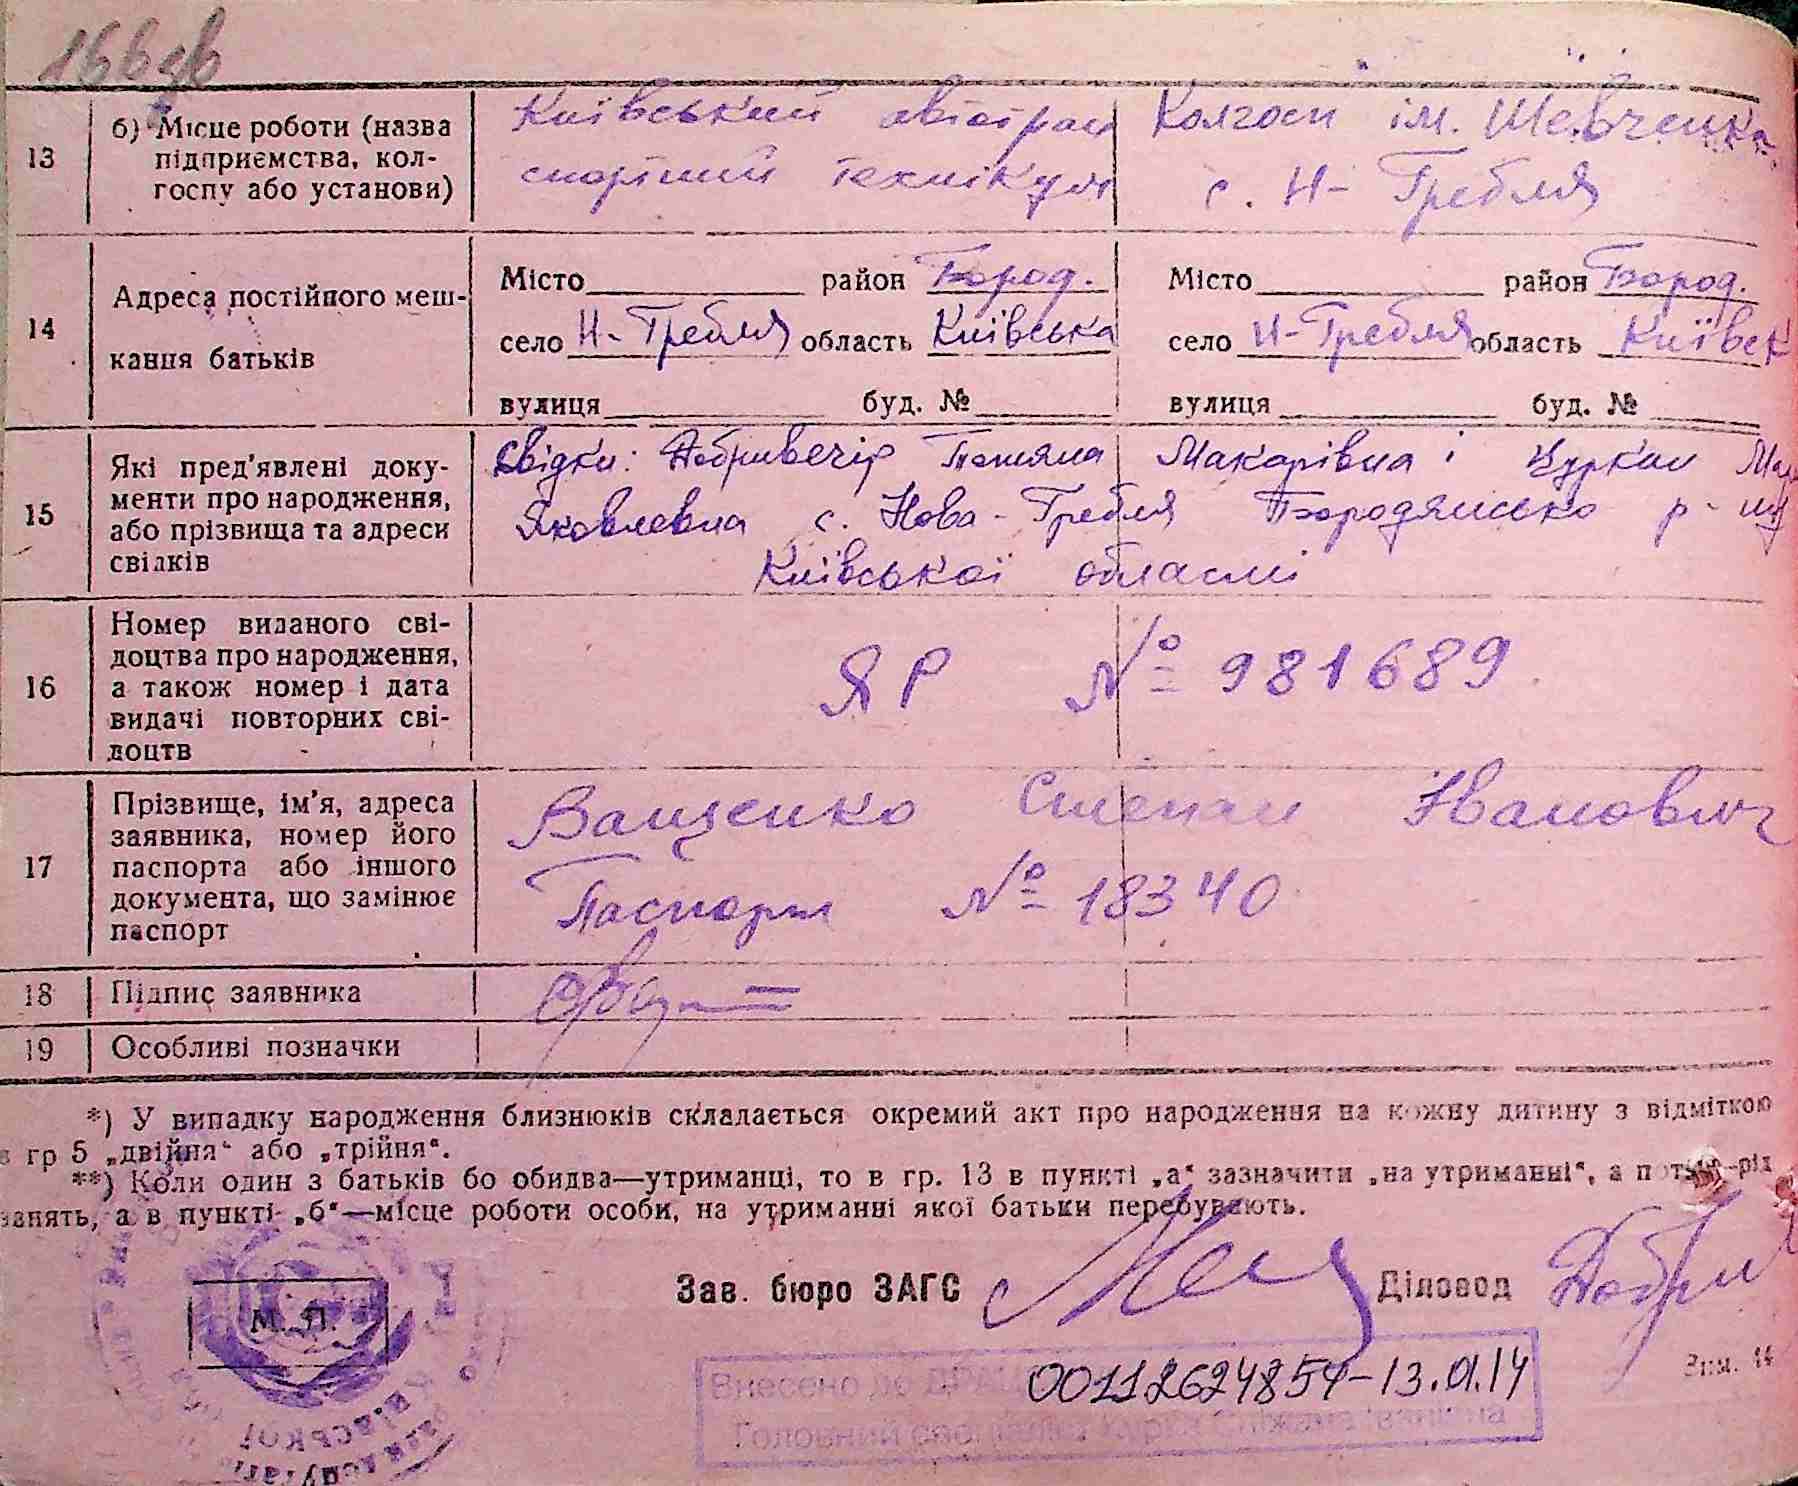 13
б) Місце роботи (назва
підприємства, кол-
госпу або установи)
Київський автотран
спортний технікум
Колгосп ім. Шевченка
с. Н-Гребля
14
Адреса постійного меш-
кання батьків
Місто район Бород.
село Н-Гребля область Київська
вулиця буд. №
Місто район Бород.
село Н-Гребля область Київськ
вулиця буд. №
15
Які пред'явлені доку-
менти про народження,
або прізвища та адреси
свідків
Свідки: Добривечір Тетяна Макарівна і Цуркан
Яковлевна с. Нова-Гребля Бородянсько р-ну
Київської області
16
Номер виданого сві-
доцтва про народження,
а також номер і дата
видачі повторних сві-
доцтв
ЯР № 981689
17
Прізвище, ім'я, адреса
заявника, номер його
паспорта або іншого
документа, що замінює
паспорт
Ващенко Степан Іванович
Паспорт № 18340
18
Підпис заявника
19
Особливі позначки
*) У випадку народження близнюків складається окремий акт про народження на кожну дитину з відміткою
в гр 5 „двійня“ або „трійня“.
**) Коли один з батьків бо обидва—утриманці, то в гр. 13 в пункті „а“ зазначити „на утриманні“, а потім-рід
занять, а в пункті „б“—місце роботи особи, на утриманні якої батьки перебувають.
Зав. бюро ЗАГС
Діловод Добри
М. П.
Внесено до
00112624854-13.01.14
Головний спеціаліст
Зам.